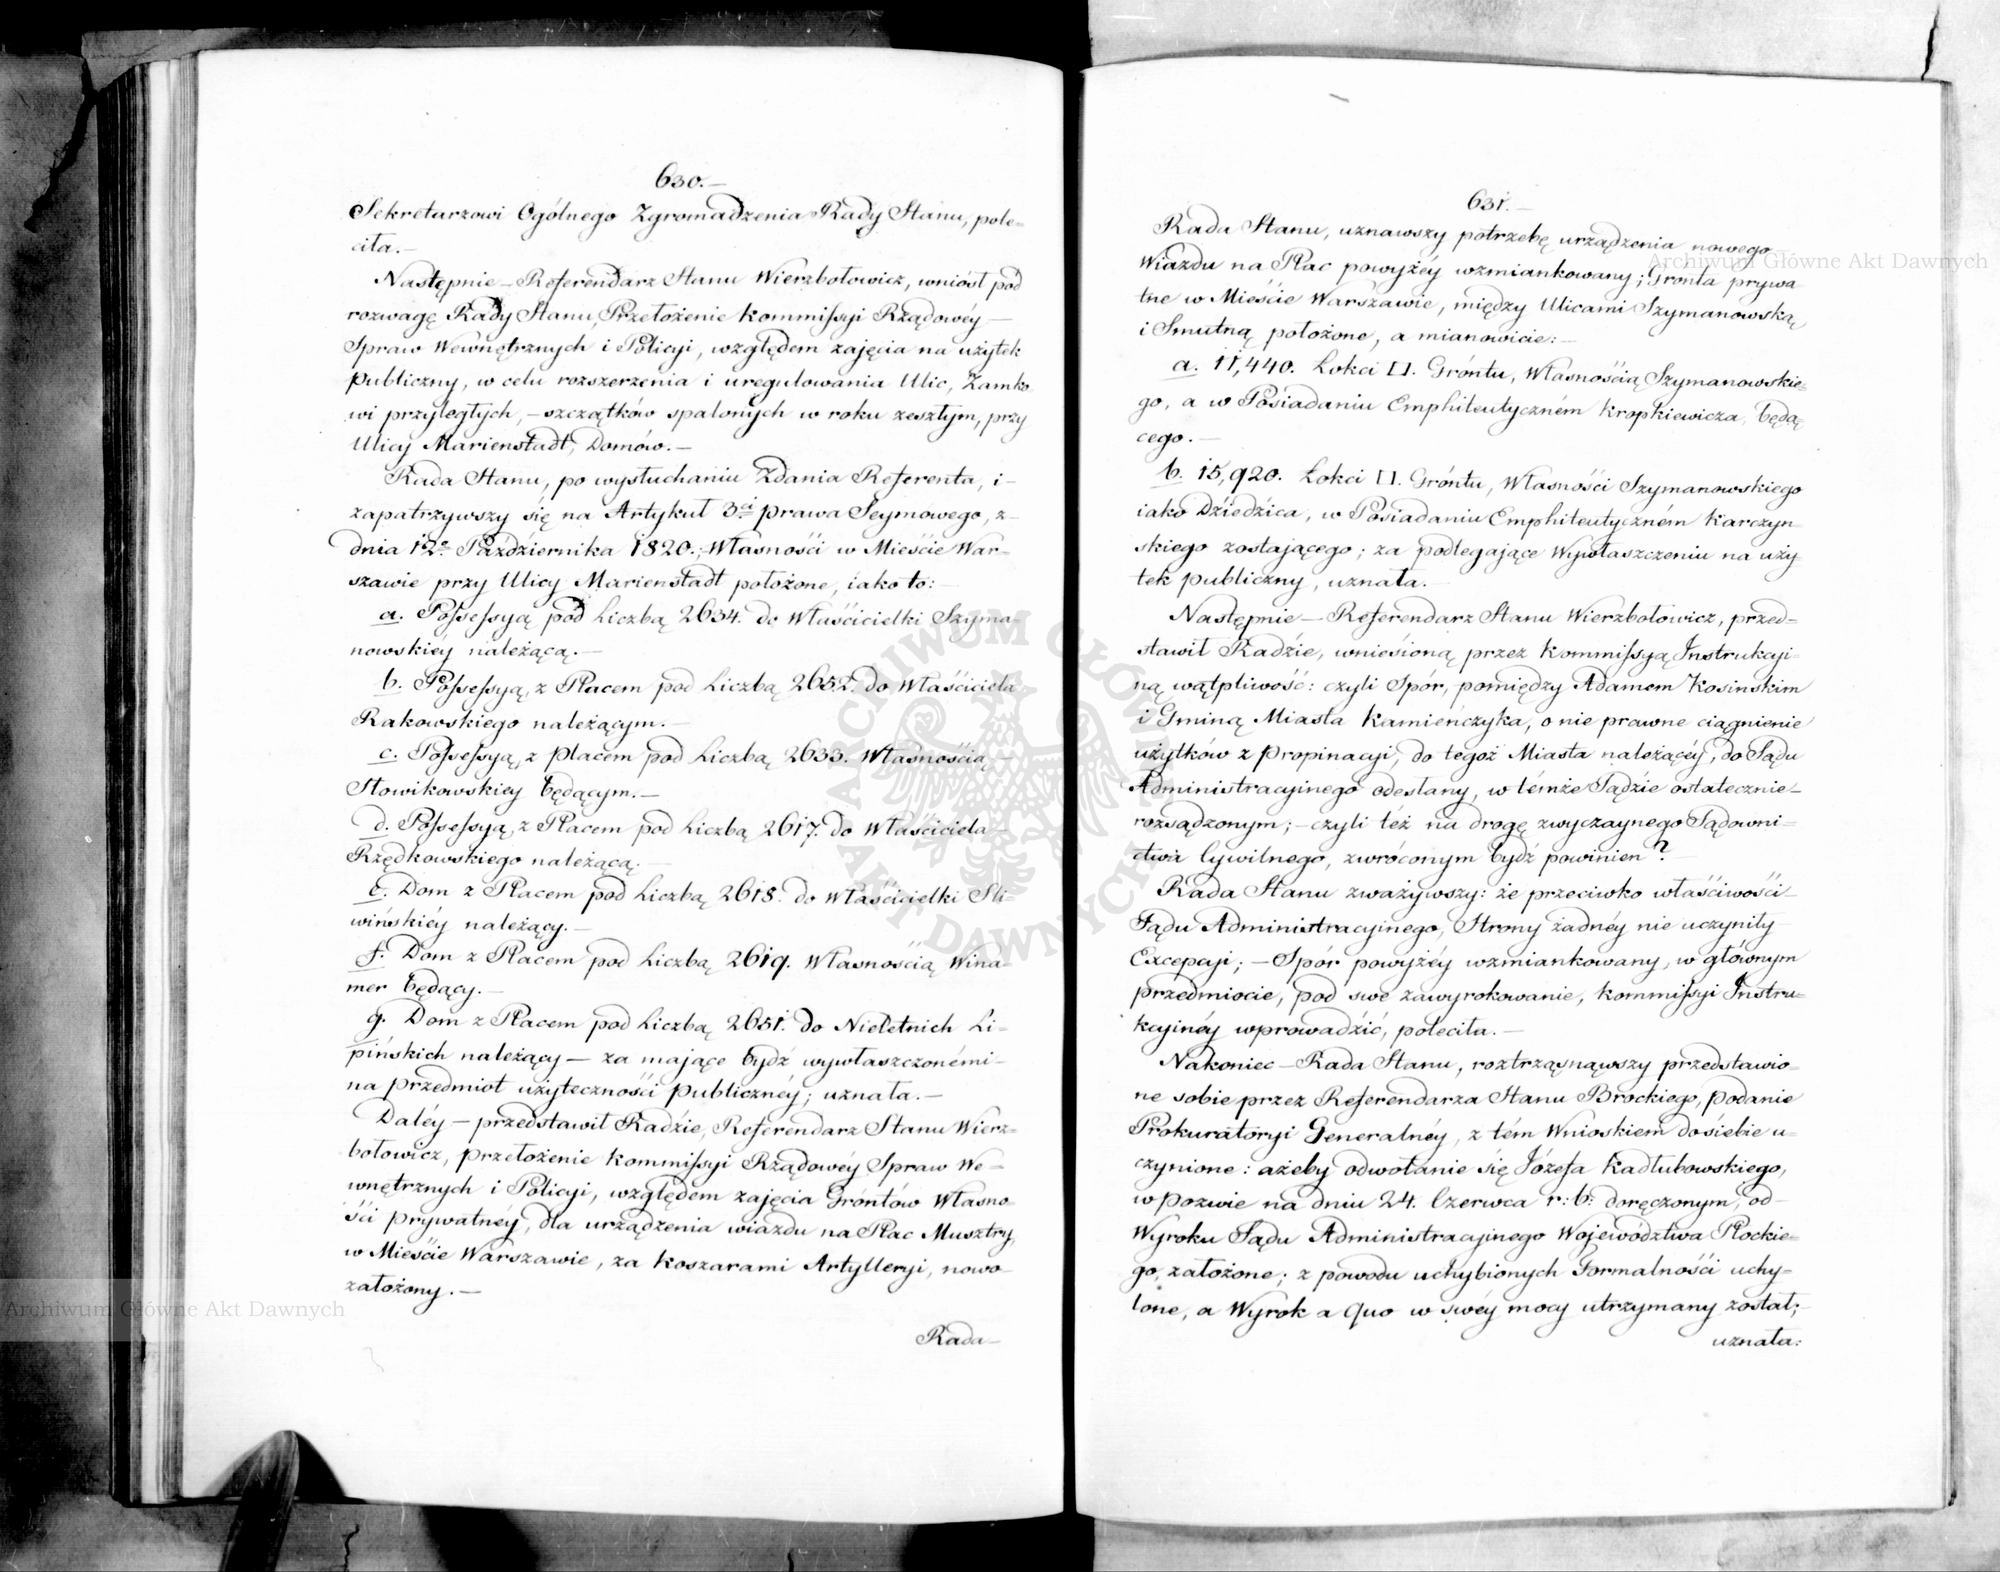 630.—
Sekretarzowi Ogólnego Zgromadzenia Rady Stanu, pole-
ciła.—
Następnie — Referendarz Stanu Wierzbołowicz, wniósł pod
rozwagę Rady Stanu, Przełożenie Kommissyi Rządowéy —
Spraw Wewnętrznych i Policyi, względem zajęcia na użytek
publiczny, w celu rozszerzenia i uregulowania Ulic, Zamko-
wi przyległych, — szczątków spalonych w roku zeszłym, przy
Ulicy Marienstadt, Domów.—
Rada Stanu, po wysłuchaniu Zdania Referenta, i —
zapatrzywszy się na Artykuł 3ci prawa Seymowego, z —
dnia 12o Października 1820.; Własności w Mieście War-
szawie przy Ulicy Marienstadt położone, iako to: —
a. Possessyą pod Liczbą 2634. do Właścicielki Szyma-
nowskiéy należącą.—
b. Possessyą, z Placem pod Liczbą 2652. do Właściciela
Rakowskiego należącym.—
c. Possessyą, z placem pod Liczbą 2633. Własnością —
Słowikowskiey będącym.—
d. Possessyą, z Placem pod Liczbą 2617. do Właściciela —
Rzędkowskiego należącą.—
e. Dom z Placem pod Liczbą 2618. do Właścicielki Sli-
wińskiéy należący.—
f. Dom z Placem pod Liczbą 2619. Własnością Wina-
mer będący.—
g. Dom z Placem pod Liczbą 2651. do Nieletnich Li-
pińskich należący — za mające bydź wywłaszczonémi —
na przedmiot użyteczności publicznéy; uznała.—
Daléy — przedstawił Radzie, Referendarz Stanu Wierz-
bołowicz, przełożenie Kommissyi Rządowéy Spraw We-
wnętrznych i Policyi, względem zajęcia Grontów Własno-
ści prywatnéy, dla urządzenia wiazdu na Plac Musztry,
w Mieście Warszawie, za koszarami Artylleryi, nowo
założony.—
Rada —
631.—
Rada Stanu, uznawszy potrzebę urządzenia nowego —
Wiazdu na Plac powyżéy wzmiankowany; Gronta prywa-
tne w Mieście Warszawie, między Ulicami Szymanowską
i Smutną położone, a mianowicie: —
a. 11,440. Łokci □. Gróntu, Własnością Szymanowskie-
go, a w Posiadaniu Emphiteutyczném Kropkiewicza, będą-
cego.—
b. 15,920. Łokci □. Gróntu, Własności Szymanowskiego
iako Dziedzica, w Posiadaniu Emphiteutyczném Karczyn-
skiego zostającego; za podlegające Wywłaszczeniu na uży-
tek publiczny, uznała.—
Następnie — Referendarz Stanu Wierzbołowicz, przed-
stawił Radzie, wniesioną przez Kommissyą Instrukcyi-
ną wątpliwość: czyli Spór, pomiędzy Adamem Kosinskim
i Gminą Miasta Kamieńczyka, o nie prawne ciągnienie
użytków z Propinacyi, do tegoż Miasta należącéy, do Sądu
Administracyinego odesłany, w témże Sądzie ostatecznie —
rozsądzonym; — czyli też na drogę zwyczaynego Sądowni-
ctwa Cywilnego, zwróconym bydź powinien? —
Rada Stanu zważywszy: że przeciwko właściwości —
Sądu Administracyinego, Strony żadnéy nie uczyniły
Excepcyi; — Spór powyżéy wzmiankowany, w głównym
przedmiocie, pod swe zawyrokowanie, Kommissyi Instru-
kcyinéy wprowadzić, poleciła.—
Nakoniec — Rada Stanu, roztrząsnąwszy przedstawio-
ne sobie przez Referendarza Stanu Brockiego, podanie
Prokuratoryi Generalnéy, z tém Wnioskiem do siebie u-
czynione: ażeby odwołanie się Józefa Kadłubowskiego,
w pozwie na dniu 24. Czerwca r: b: doręczonym, od —
Wyroku Sądu Administracyinego Województwa Płockie-
go, założone; z powodu uchybionych Formalności uchy-
lone, a Wyrok a quo w swéy mocy utrzymany został; —
uznała:
Archiwum Główne Akt Dawnych
Archiwum Główne Akt Dawnych
ARCHIWUM GŁÓWNE AKT DAWNYCH